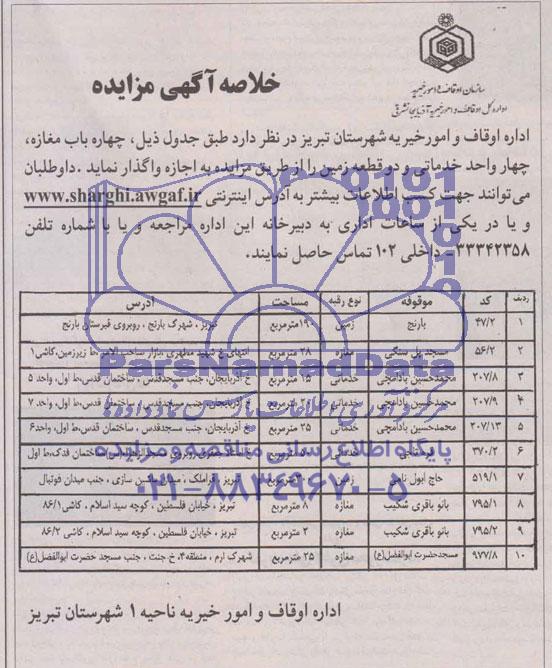 سازمان اوقاف و امور خیریه
اداره کل اوقاف و امور خیریه آذربایجانشرقی
خلاصه آگهی مزایده
اداره اوقاف و امورخیریه شهرستان تبریز در نظر دارد طبق جدول ذیل، چهاره باب مغازه،
چهار واحد خدماتی و دو قطعه زمین را از طریق مزایده به اجازه واگذار نماید .داوطلبان
می‌توانند جهت کسب اطلاعات بیشتر به آدرس اینترنتی www.sharghi.awgaf.ir
و یا در یکی از ساعات اداری به دبیرخانه این اداره مراجعه و یا با شماره تلفن
۳۳۳۴۲۳۵۸- داخلی ۱۰۲ تماس حاصل نمایند.
ردیف کد موقوفه نوع رقبه مساحت آدرس
۱ ۴۷/۲ بارنج زمین ۱۹مترمربع تبریز ، شهرک بارنج ، روبروی قبرستان بارنج
۲ ۵۶/۲ مسجد پل سنگی مغازه ۲۸ مترمربع انتهای خ شهید مطهری، بازار صاحب الامر،ط زیرزمین،کاشی۱
۳ ۲۰۷/۸ محمدحسین بادامچی خدماتی ۱۵ مترمربع خ آذربایجان، جنب مسجدقدس ، ساختمان قدس،ط اول، واحد ۵
۴ ۲۰۷/۹ محمدحسین بادامچی خدماتی مترمربع خ آذربایجان، جنب مسجدقدس، ساختمان قدس،ط اول، واحد ۷
۵ ۲۰۷/۱۳ محمدحسین بادامچی خدماتی ۳۵ مترمربع خ آذربایجان، جنب مسجدقدس، ساختمان قدس،ط اول، واحد۶
۶ ۳۷۰/۲ خدماتی مترمربع ساختمان فدک،ط اول
۷ ۵۱۹/۱ حاج ابول زمین مترمربع تبریز، قراملک ، میدان ماشین سازی ، جنب میدان فوتبال
۸ ۷۹۵/۱ بانو باقری شکیب مغازه ۸ مترمربع تبریز ، خیابان فلسطین ، کوچه سید اسلام ، کاشی ۸۶/۱
۹ ۷۹۵/۲ بانو باقری شکیب مغازه ۲ مترمربع تبریز ، خیابان فلسطین ، کوچه سید اسلام ، کاشی ۸۶/۲
۱۰ ۹۷۷/۸ مسجدحضرت ابوالفضل(ع) مغازه ۲۵ مترمربع شهرک ارم ، منطقه۴، خ جنت ، جنب مسجد حضرت ابوالفضل(ع)
ParsNamadData
مرکز فرآوری اطلاعات پارس نماد داده ها
پایگاه اطلاع رسانی مناقصه و مزایده
۰۲۱-۸۸۳۴۹۶۷۰-۵
اداره اوقاف و امور خیریه ناحیه ۱ شهرستان تبریز